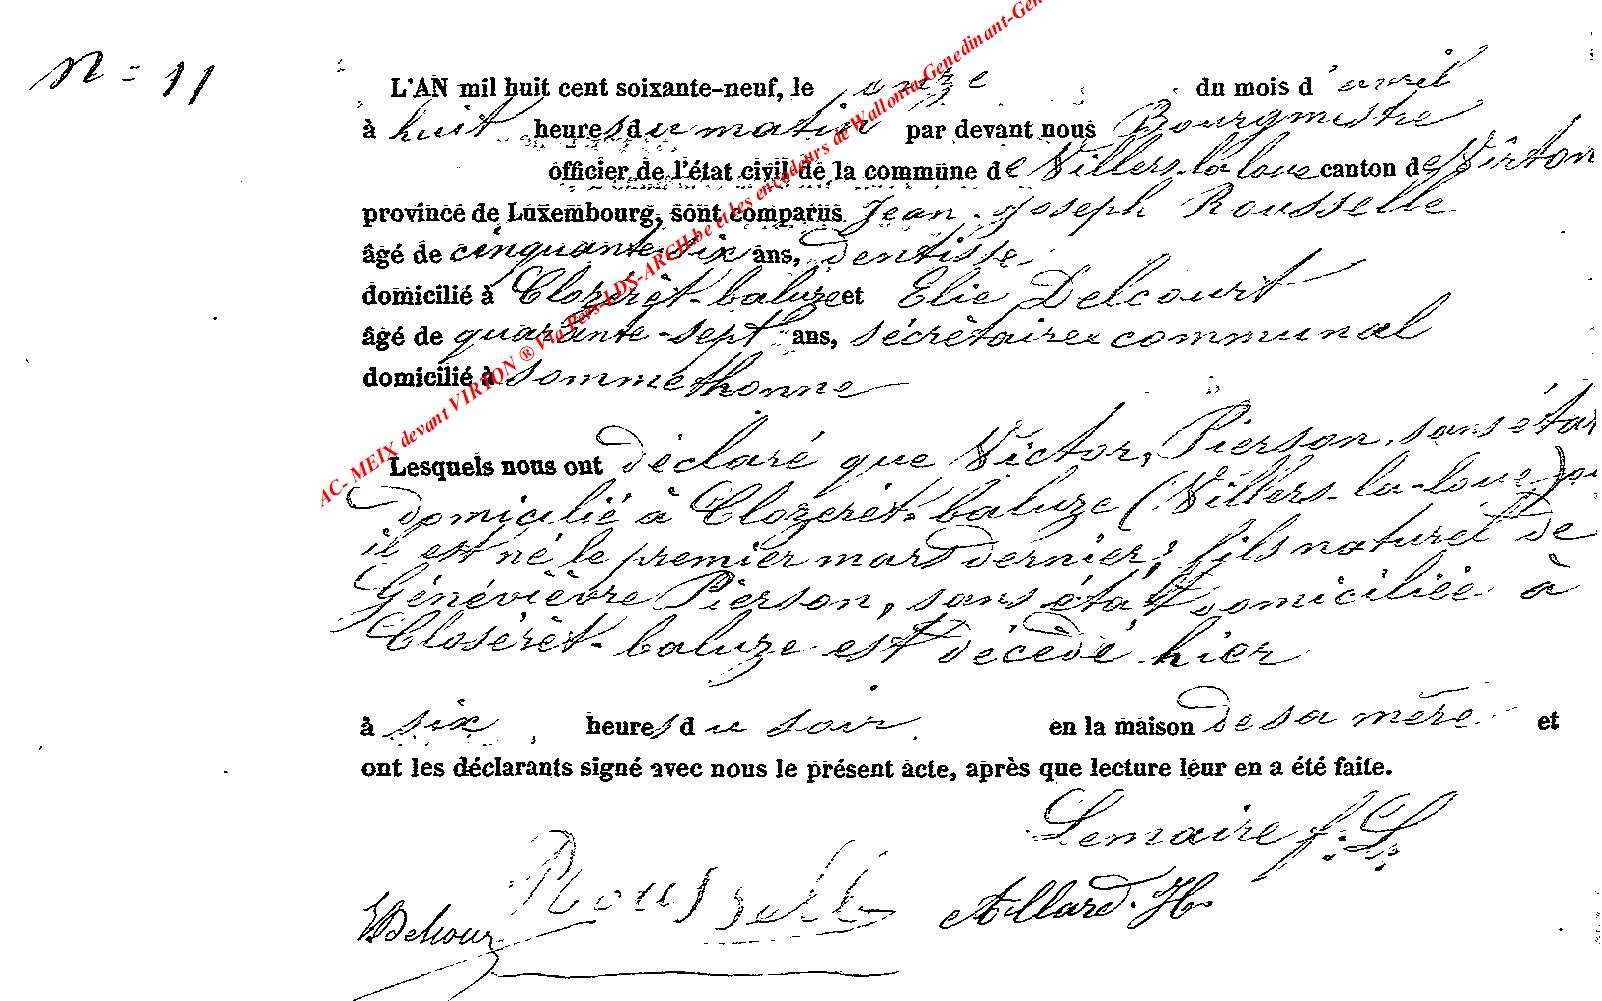 N = 11
L'AN mil huit cent soixante-neuf, le onze du mois d'avril
à huit heures du matin par devant nous Bourgmestre
officier de l'état civil de la commune de Villers-la-loue canton de Virton
province de Luxembourg, sont comparus Jean-Joseph Rousselle
âgé de cinquante-six ans, dentiste
domicilié à Clozerêt-baluze et Elie Delcourt
âgé de quarante-sept ans, sécrètaire communal
domicilié à sommethonne
Lesquels nous ont déclaré que Victor, Pierson, sans état
domicilié à Clozerèt-baluze (Villers-la-loue) où
il est né le premier mars dernier; fils naturel de
Génévièvre Pierson, sans état domiciliée à
Closérêt-baluze est décèdé hier
à six heures du soir en la maison de sa mère et
ont les déclarants signé avec nous le présent acte, après que lecture leur en a été faite.
Lemaire f. L.
Rousselle
EDelcour
Allard. H.
AC- MEIX devant VIRTON ® Via Pers-LDS-ARCH.be et les encodeurs de Wallonia-Genedinant-Gen